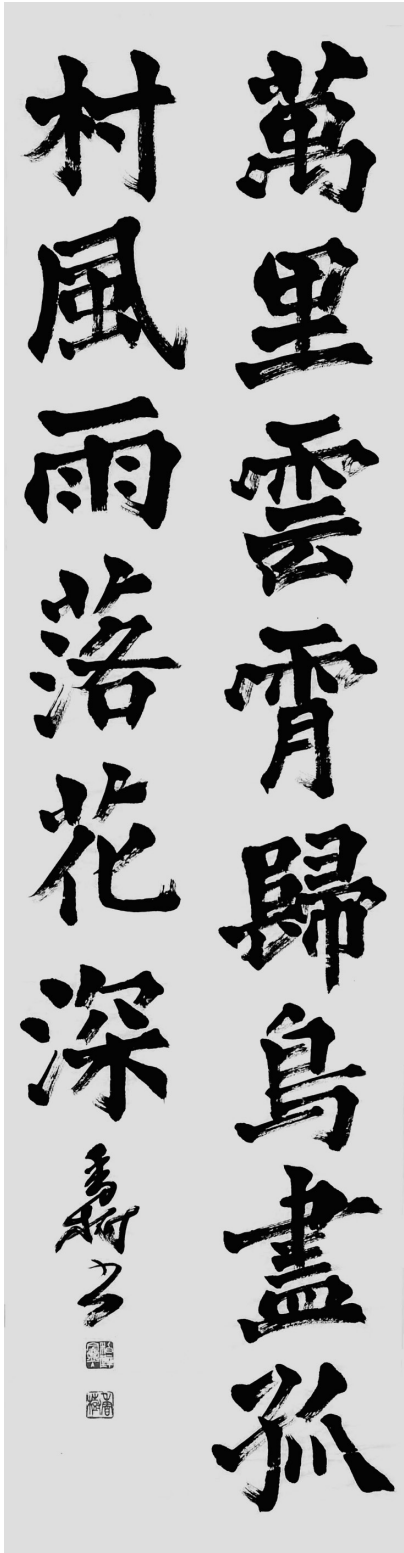 萬里雲霄歸鳥盡孤
村風雨落花深